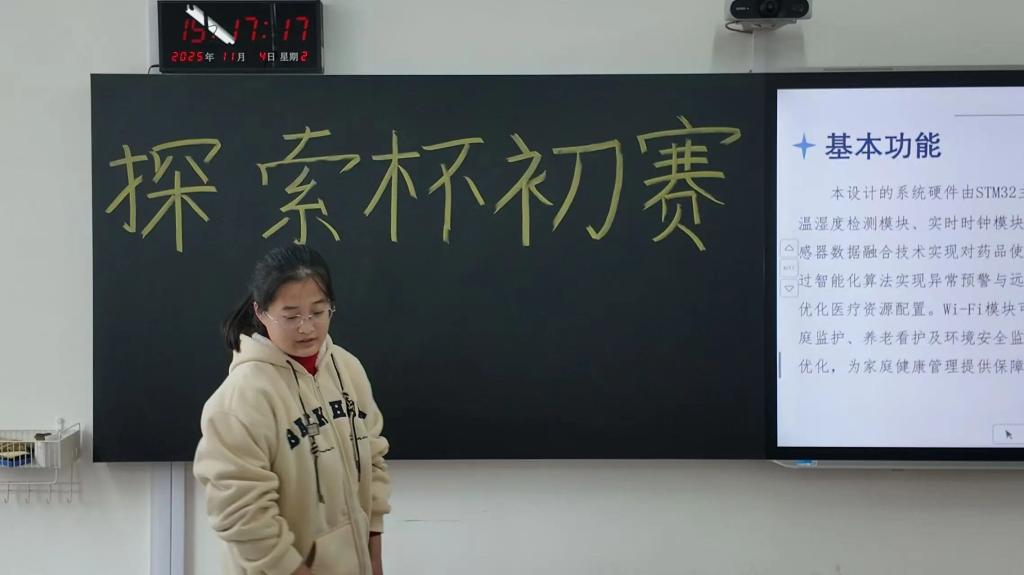 15:17:17
2025年 11月 4日 星期2
探索杯初赛
基本功能
本设计的系统硬件由STM32主
温湿度检测模块、实时时钟模块
感器数据融合技术实现对药品使
过智能化算法实现异常预警与远
优化医疗资源配置。Wi-Fi模块可
庭监护、养老看护及环境安全监
优化，为家庭健康管理提供保障